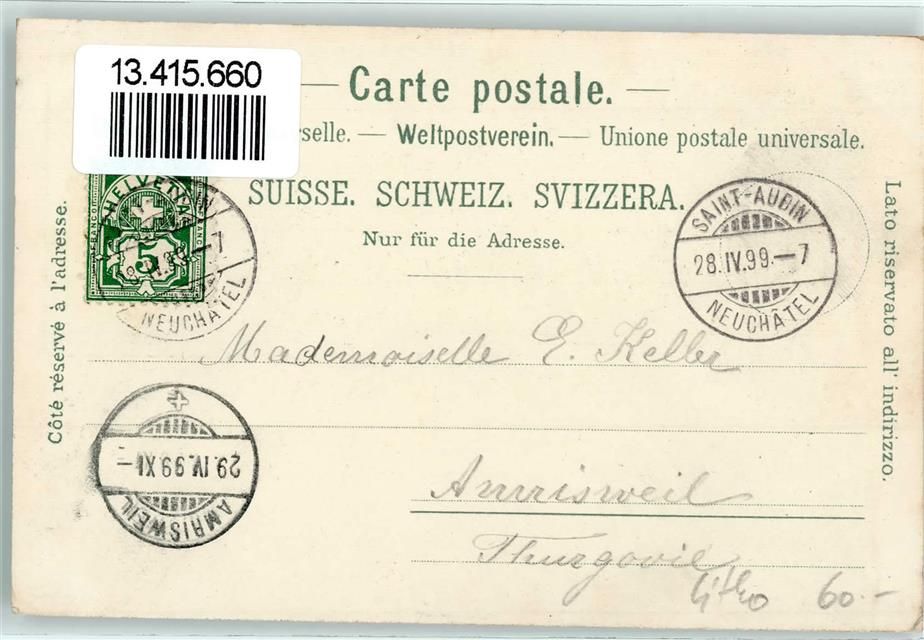 13.415.660
Carte postale.
rselle. — Weltpostverein. — Unione postale universale.
SUISSE. SCHWEIZ. SVIZZERA.
Nur für die Adresse.
Côté réservé à l'adresse.
Lato riservato all' indirizzo.
HELVETIA
FRANCO
5
NEUCHÂTEL
SAINT-AUBIN
28.IV.99.—7
NEUCHÂTEL
Mademoiselle E. Keller
29.IV.99 XI—
AMRISWEIL
Amrisweil
Thurgovie
Litho 60.—